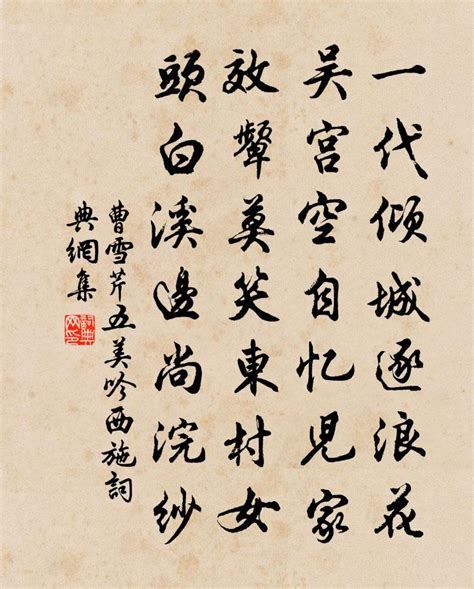 一代倾城逐浪花
吴宫空自忆兒家
效颦莫笑東村女
頭白溪邊尚浣紗
曹雪芹五美吟西施詞
典網集